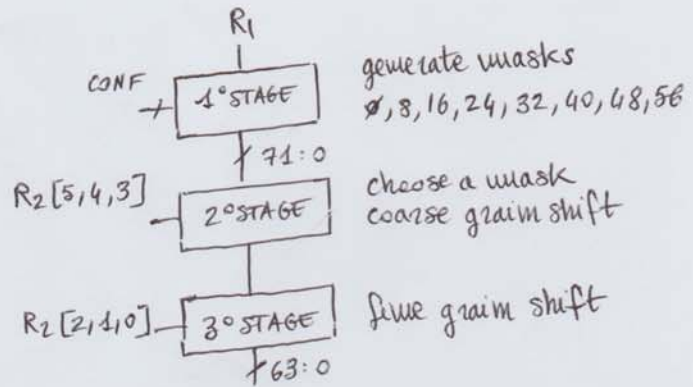 R1
CONF
1° STAGE
generate masks
0, 8, 16, 24, 32, 40, 48, 56
71:0
R2 [5,4,3]
2° STAGE
choose a mask
coarse grain shift
R2 [2,1,0]
3° STAGE
fine grain shift
63:0